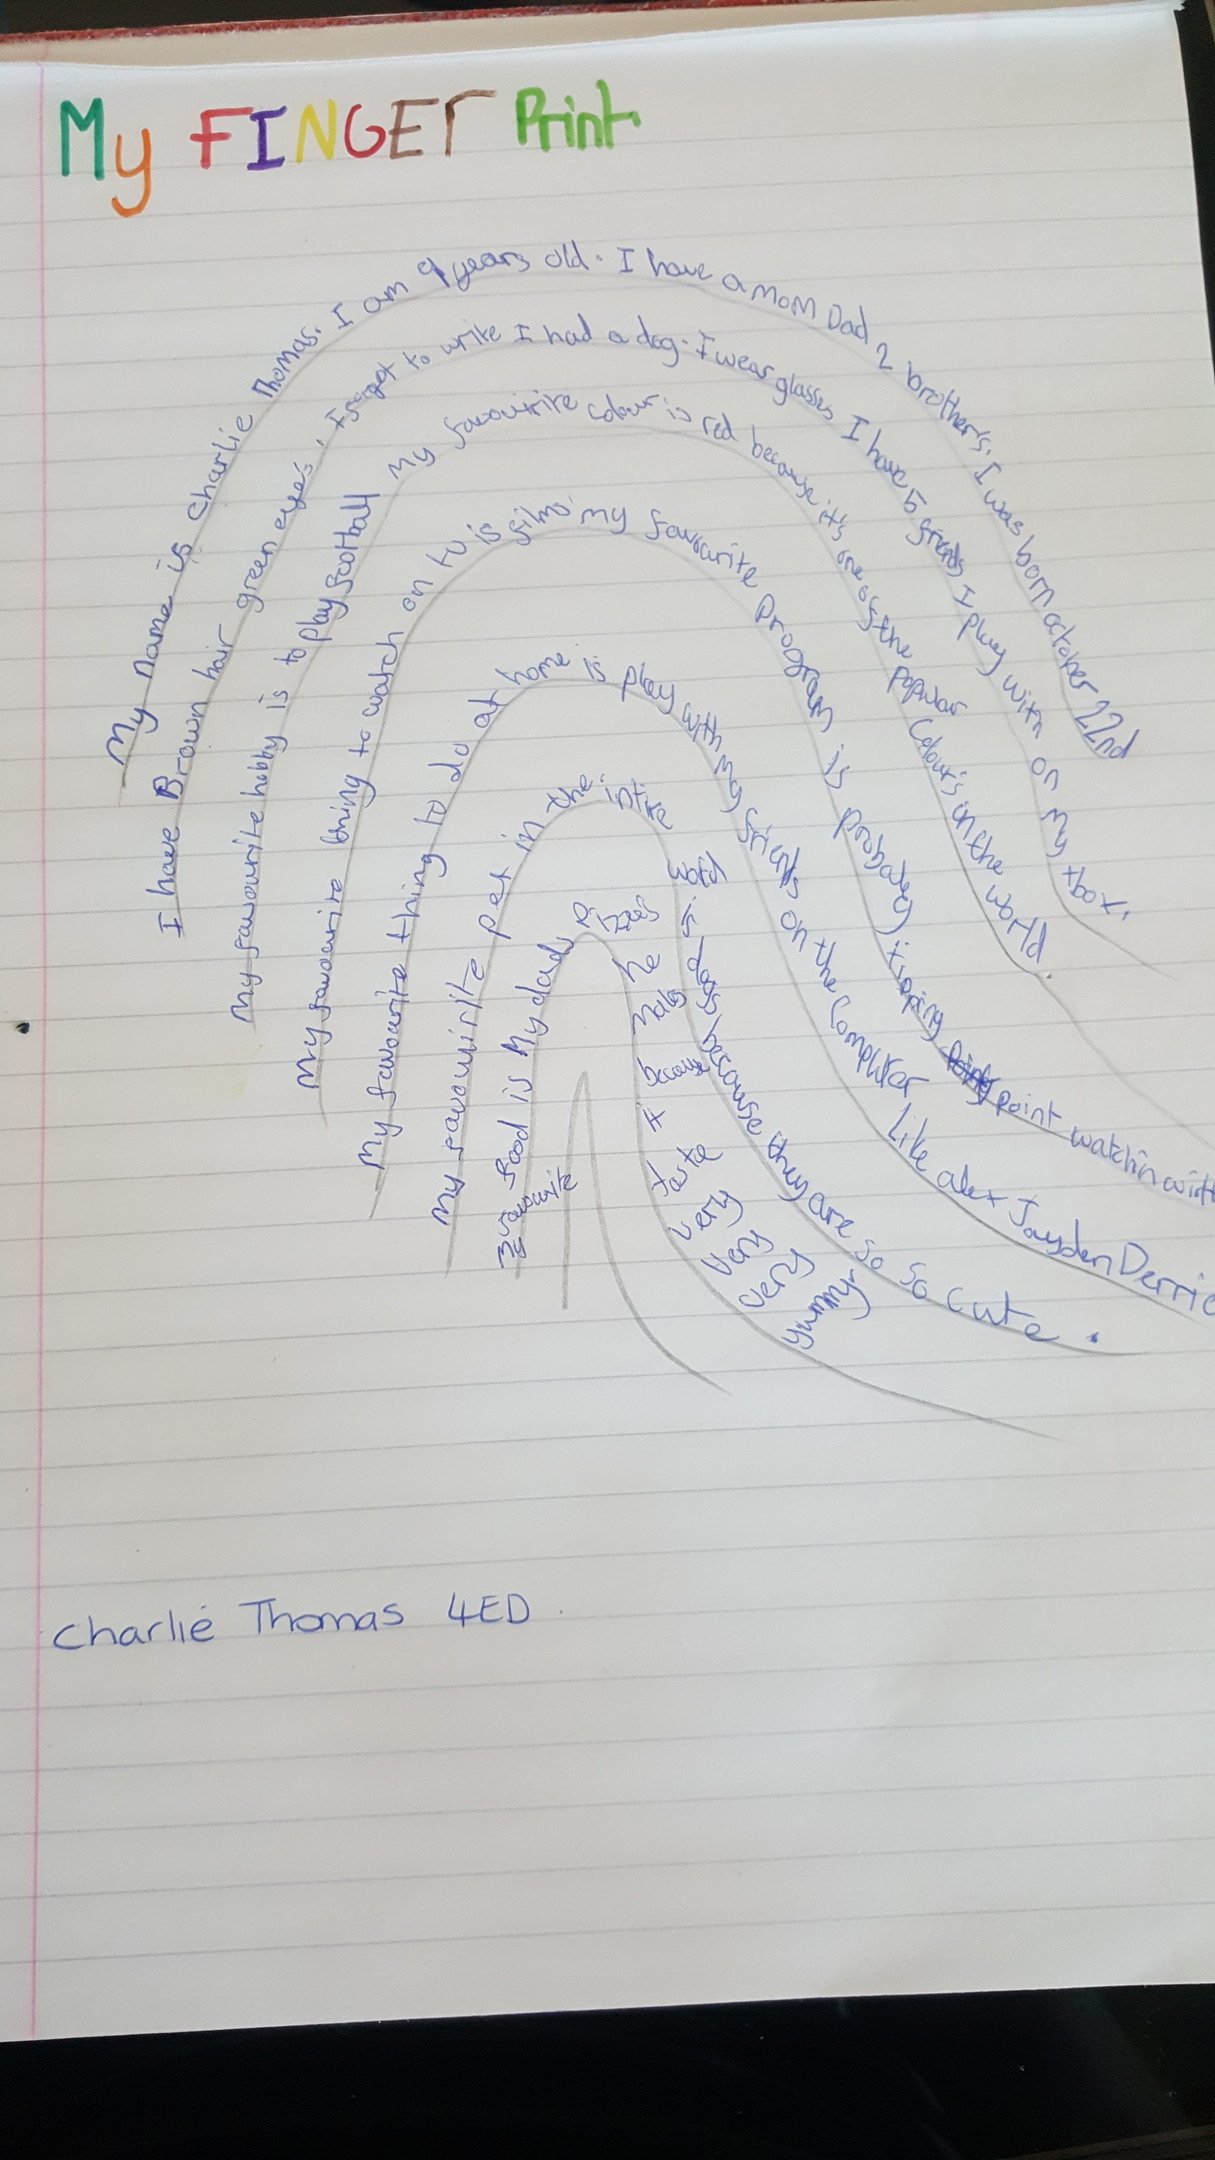 My FINGEr Print.
My name is Charlie Thomas. I am 9 years old. I have a mom Dad 2 brother's. I was born octoper 22nd
I have Brown hair green eye's. I forgot to write I had a dog. I wear glasses I have 5 friends I play with on my xbox.
My favourite hobby is to play football My favourite colour is red because it's one of the popular colour's in the world.
My favourite thing to watch on tv is films my favourite program is probaley point watchin with
My favourite thing to do at home is play with my friends on the computer Like alex Jayden Derric
My favourite pet in the intire world is dogs because they are so so cute.
My favourite food is My dad pizzas he makes because it taste very very very yummy
Charlie Thomas 4ED